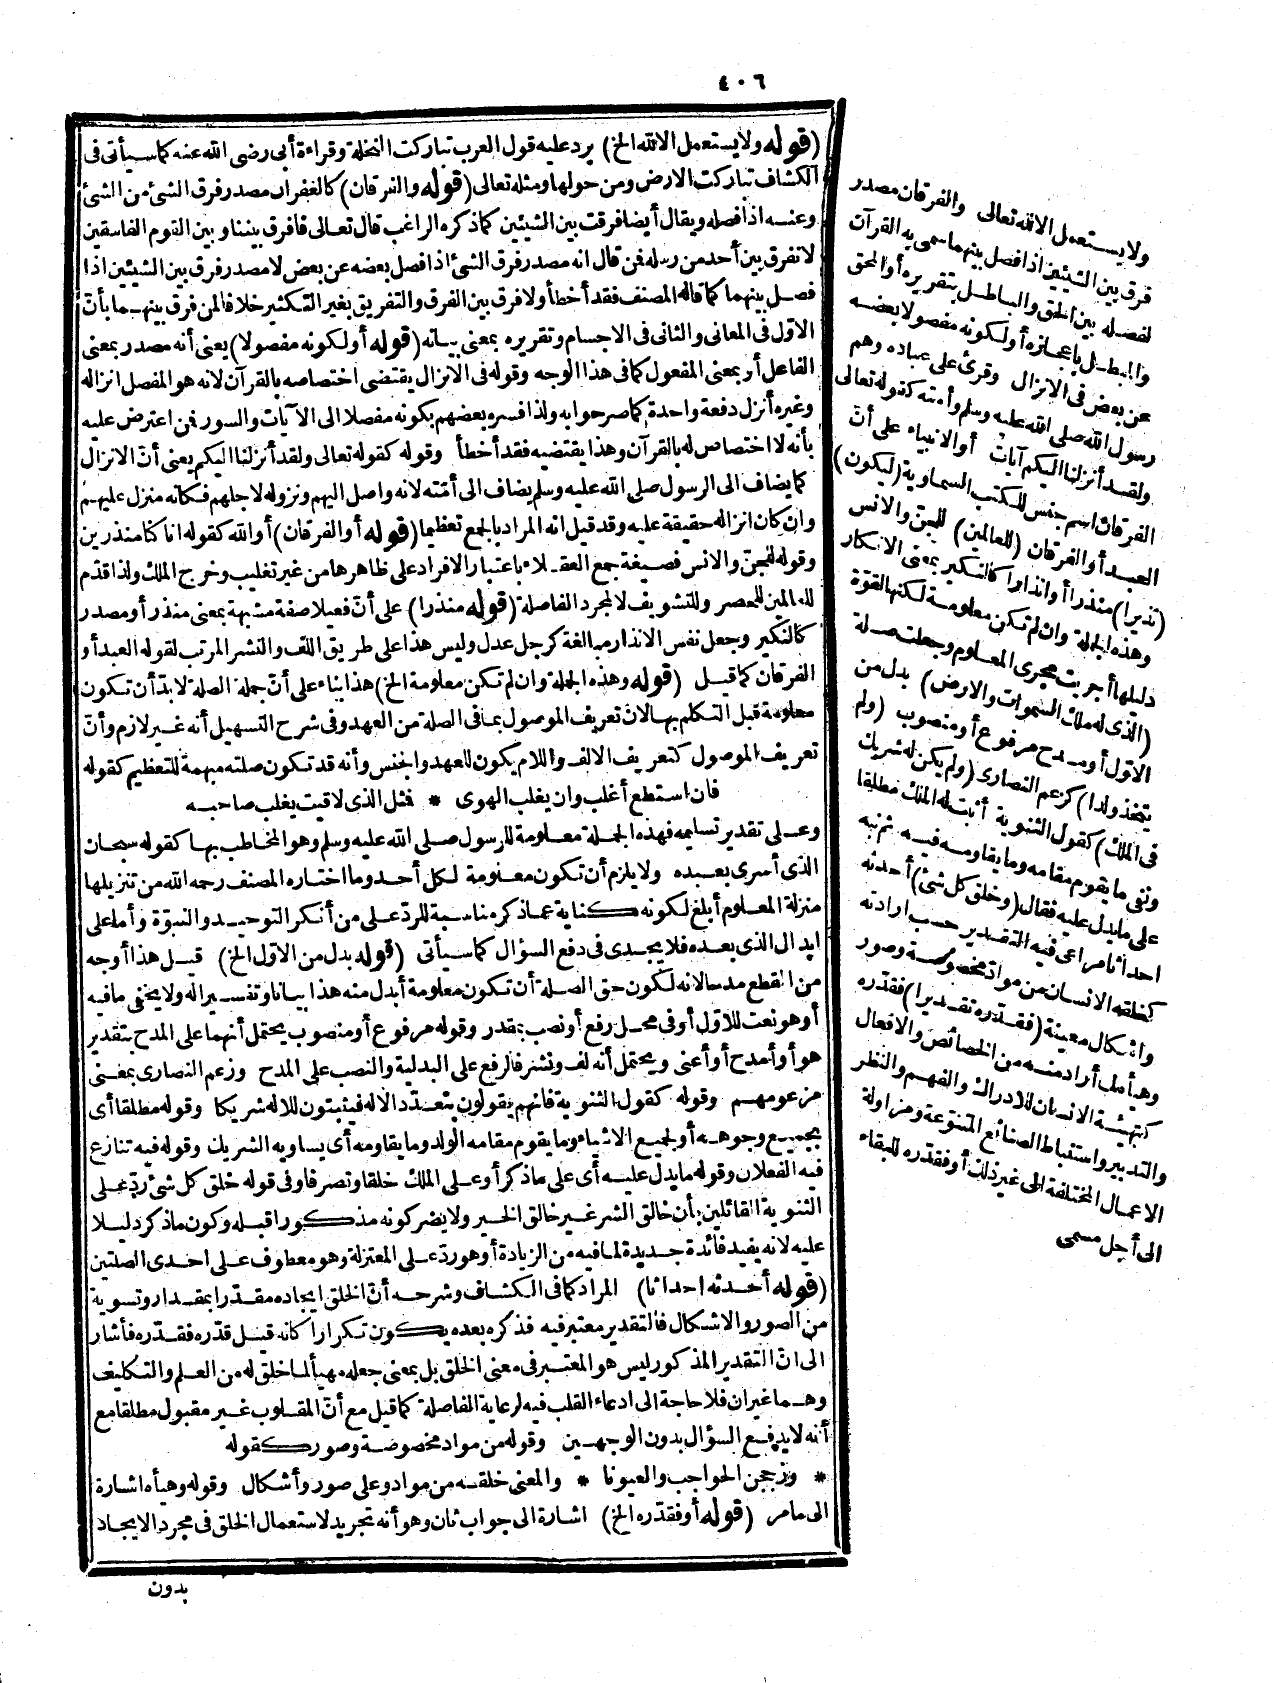 ٤٠٦
(قوله ولا يستعمل الا لله الخ) يرد عليه قول العرب تباركت النخلة وقراءة أبى رضى الله عنه كما سيأتى فى
الكشاف تباركت الارض ومن حولها ومثله تعالى (قوله والفرقان) كالغفران مصدر فرق الشئ من الشئ
وعنه اذا فصله ويقال أيضا فرقت بين الشيئين كما ذكره الراغب قال تعالى فافرق بيننا وبين القوم الفاسقين
لا نفرق بين أحد من رسله فمن قال انه مصدر فرق الشئ اذا فصل بعضه عن بعض لا مصدر فرق بين الشيئين اذا
فصل بينهما كما قاله المصنف فقد أخطأ ولا فرق بين الفرق والتفريق بغير التكثير خلافا لمن فرق بينهما بأنّ
الاوّل فى المعانى والثانى فى الاجسام وتقريره بمعنى بيانه (قوله أو لكونه مفصولا) يعنى أنه مصدر بمعنى
الفاعل أو بمعنى المفعول كما فى هذا الوجه وقوله فى الانزال يقتضى اختصاصه بالقرآن لانه هو المفصل انزاله
وغيره أنزل دفعة واحدة كما صرحوا به ولذا فسره بعضهم بكونه مفصلا الى الآيات والسور فمن اعترض عليه
بأنه لا اختصاص له بالقرآن وهذا يقتضيه فقد أخطأ وقوله كقوله تعالى ولقد أنزلنا اليكم يعنى أنّ الانزال
كما يضاف الى الرسول صلى الله عليه وسلم يضاف الى أمّته لانه واصل اليهم ونزوله لاجلهم فكأنه منزل عليهم
وان كان انزاله حقيقة عليه وقد قيل انه المراد بالجمع تعظيما (قوله أو الفرقان) أو الله كقوله انا كنا منذرين
وقوله للجنّ والانس فصيغة جمع العقلاء باعتبار الافراد على ظاهرها من غير تغليب وخرج الملك ولذا قدّم
للعالمين للحصر وللتشويف لا لمجرد الفاصلة (قوله منذرا) على أنّ فعيلا صفة مشبهة بمعنى منذر أو مصدر
كالنكير وجعل نفس الانذار مبالغة كرجل عدل وليس هذا على طريق اللف والنشر المرتب لقوله العبد أو
الفرقان كما قيل (قوله وهذه الجملة وان لم تكن معلومة الخ) هذا بناء على أنّ جملة الصلة لا بدّ أن تكون
معلومة قبل التكلم بها لان تعريف الموصول بما فى الصلة من العهد وفى شرح التسهيل أنه غير لازم وأنّ
تعريف الموصول كتعريف الالف واللام يكون للعهد والجنس وأنه قد تكون صلته مبهمة للتعظيم كقوله
فان استطع أغلب وان يغلب الهوى * فمثل الذى لاقيت يغلب صاحبه
وعلى تقدير تسليمه فهذه الجملة معلومة للرسول صلى الله عليه وسلم وهو المخاطب بها كقوله سبحان
الذى أسرى بعبده ولا يلزم أن تكون معلومة لكل أحد وما اختاره المصنف رحمه الله من تنزيلها
منزلة المعلوم أبلغ لكونه كناية عما ذكره مناسبة للردّ على من أنكر التوحيد والنبوّة وأما على
ابدال الذى بعده فلا يجدى فى دفع السؤال كما سيأتى (قوله بدل من الاوّل الخ) قيل هذا أوجه
من القطع مدحا لانه لكون حق الصلة أن تكون معلومة أبدل منه هذا بيانا وتفسيرا له ولا يخفى ما فيه
أو هو نعت للاوّل أو فى محل رفع أو نصب بمقدر وقوله مرفوع أو منصوب يحتمل أنهما على المدح بتقدير
هو أو أمدح أو أعنى ويحتمل أنه لف ونشر فالرفع على البدلية والنصب على المدح وزعم النصارى بمعنى
مزعومهم وقوله كقول الثنوية فانهم يقولون بتعدّد الاله فيثبتون للاله شريكا وقوله مطلقا أى
بجميع وجوهه أو لجميع الاشياء وما يقوم مقامه الولد وما يقاومه أى يساويه الشريك وقوله فيه تنازع
فيه الفعلان وقوله ما يدل عليه أى على ما ذكر أو على الملك خلقا وتصرفا وفى قوله خلق كل شئ ردّ على
الثنوية القائلين بأن خالق الشر غير خالق الخير ولا يضر كونه مذكورا قبله وكون ما ذكر دليلا
عليه لانه يفيد فائدة جديدة لما فيه من الزيادة أو هو ردّ على المعتزلة وهو معطوف على احدى الصلتين
(قوله أحدثه احداثا) المراد كما فى الكشاف وشرحه أنّ الخلق ايجاده مقدّرا بمقدار وتسوية
من الصور والاشكال فالتقدير معتبر فيه فذكره بعده يكون تكرارا كانه قيل قدّره فقدّره فأشار
الى انّ التقدير المذكور ليس هو المعتبر فى معنى الخلق بل بمعنى جعله مهيأ لما خلق له من العلم والتكليف
وهما غيران فلا حاجة الى ادعاء القلب فيه لرعاية الفاصلة كما قيل مع أنّ المقلوب غير مقبول مطلقا مع
أنه لا يدفع السؤال بدون الوجهين وقوله من مواد مخصوصة وصور كقوله
* وزججن الحواجب والعيونا * والمعنى خلقه من مواد وعلى صور وأشكال وقوله وهيأه اشارة
الى ما مر (قوله أو فقدّره الخ) اشارة الى جواب ثان وهو أنه تجريد لاستعمال الخلق فى مجرد الايجاد
بدون
ولا يستعمل الا لله تعالى والفرقان مصدر
فرق بين الشيئين اذا فصل بينهما سمى به القرآن
لفصله بين الحق والباطل بتقريره أو المحق
والمبطل باعجازه أو لكونه مفصولا بعضه
عن بعض فى الانزال وقرئ على عباده وهم
رسول الله صلى الله عليه وسلم وأمته كقوله تعالى
ولقد أنزلنا اليكم آيات أو الانبياء على أنّ
الفرقان اسم جنس للكتب السماوية (ليكون)
العبد أو الفرقان (للعالمين) للجنّ والانس
(نذيرا) منذرا أو انذارا كالنكير بمعنى الانكار
وهذه الجملة وان لم تكن معلومة لكنها لقوّة
دليلها أجريت مجرى المعلوم وجعلت صلة
(الذى له ملك السموات والارض) بدل من
الاوّل أو مدح مرفوع أو منصوب (ولم
يتخذ ولدا) كزعم النصارى (ولم يكن له شريك
فى الملك) كقول الثنوية أثبت له الملك مطلقا
ونفى ما يقوم مقامه وما يقاومه فيه ثم نبه
على ما يدل عليه فقال (وخلق كل شئ) أحدثه
احداثا مراعى فيه التقدير حسب ارادته
كخلقه الانسان من موادّ مخصوصة وصور
وأشكال معينة (فقدّره تقديرا) فقدّره
وهيأه لما أراد منه من الخصائص والافعال
كتهيئة الانسان للادراك والفهم والنظر
والتدبير واستنباط الصنائع المتنوعة ومزاولة
الاعمال المختلفة الى غير ذلك أو فقدّره للبقاء
الى أجل مسمى